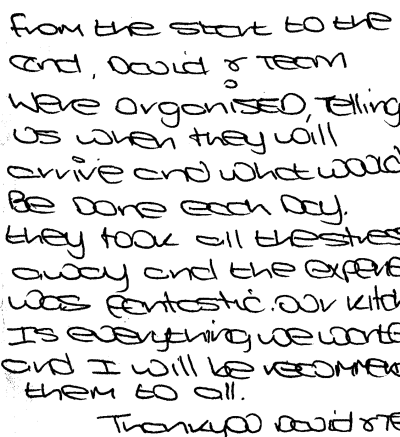 from the start to the
end, David & Team
were organised, Telling
us when they will
arrive and what would
Be Done each Day.
they took all the stres
away and the experie
was fantastic. our kitch
Is everything we wante
and I will be recommen
them to all.
Thankyou David & Te